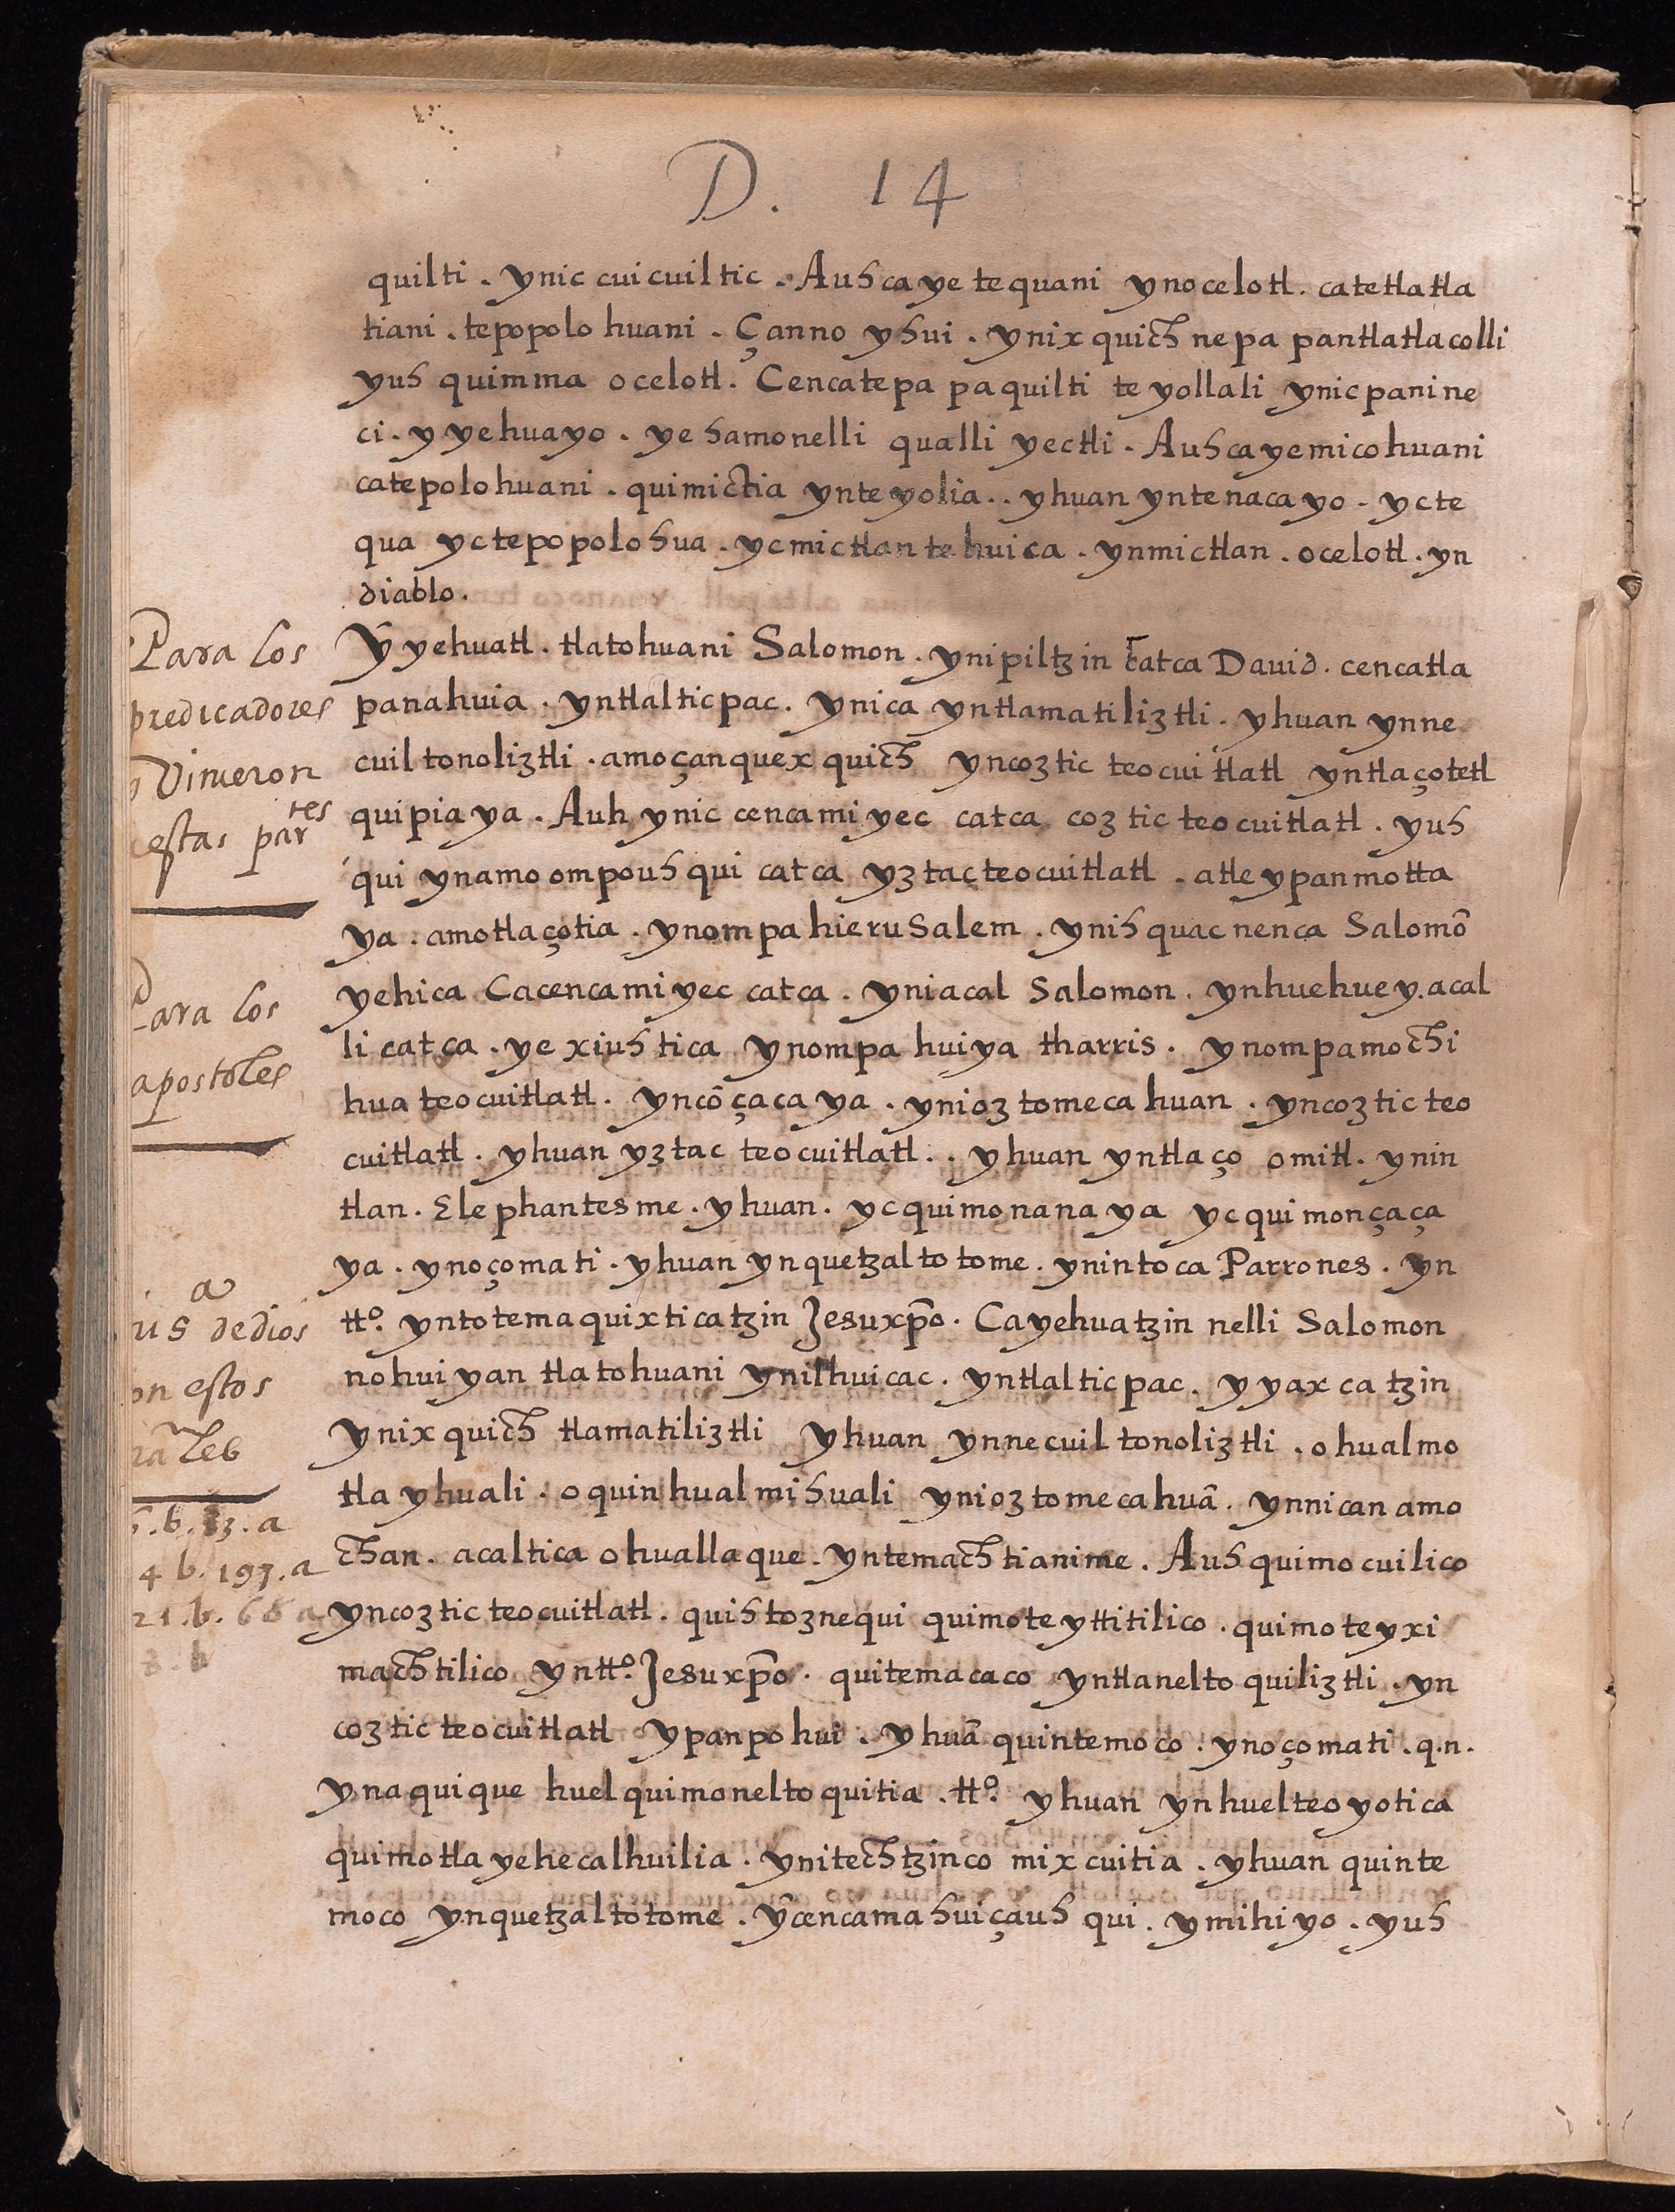 D. 14
quilti. ynic cuicuiltic. Auh ca ye tequani ynocelotl. catetlatla
tiani. tepopolohuani. Çanno yhui. ynixquich nepapantlatlacolli
yuh quimma ocelotl. Cenca tepapaquilti teyollali ynic panine
ci. y yehuayo. yeh amonelli qualli yectli. Auh ca ye micohuani
catepolohuani. quimictia ynteyolia.. yhuan yntenacayo. ycte
qua yctepopolohua. ycmictlan tehuica. ynmictlan. ocelotl. yn
diablo.
Para los
predicadores
q̃ Vinieron
estas partes
Y yehuatl. tlatohuani Salomon. ynipiltzin catca Dauid. cencatla
panahuia. yntlalticpac. ynica yntlamatiliztli. yhuan ynne
cuiltonoliztli. amoçanquexquich yncoztic teocuitlatl yntlaçotetl
quipiaya. Auh ynic cenca miyec catca coztic teocuitlatl. yuh
qui ynamo ompouhqui catca yztac teocuitlatl. atle ypanmotta
ya. amotlaçotia. ynompa hieruSalem. ynihquac nenca Salomō
Para los
apostoles
yehica Cacenca miyec catca. yniacal Salomon. ynhuehuey. acal
li catca. ye xiuhtica ynompa huiya tharris. ynompa mochi
hua teocuitlatl. yncōçacaya. ynioztomecahuan. yncoztic teo
cuitlatl. yhuan yztac teocuitlatl.. yhuan yntlaço omitl. ynin
tlan. Elephantesme. yhuan. ycquimonanaya ycquimonçaça
ya. ynoçomati. yhuan ynquetzaltotome. ynintoca Parrones. yn
tto. yntotemaquixticatzin Jesuxp̄o. Cayehuatzin nelli Salomon
nohuiyan tlatohuani ynilhuicac. yntlalticpac. yyaxcatzin
a
us de dios
on estos
ynixquich tlamatiliztli yhuan ynnecuiltonoliztli. ohualmo
tlayhuali. oquinhualmihuali ynioztomecahuā. ynnican amo
chan. acaltica ohuallaque. yntemachtianime. Auh quimocuilico
yncoztic teocuitlatl. quihtoznequi quimoteyttitilico. quimoteyxi
machtilico yntto. Jesuxp̄o. quitemacaco yntlaneltoquiliztli. yn
4 b. 197. a
coztic teocuitlatl ypanpohui. yhuā quintemoco. ynoçomati. q.n.
ynaquique huel quimoneltoquitia. tto. yhuan ynhuel teoyotica
quimotlayehecalhuilia. ynitechtzinco mixcuitia. yhuan quinte
moco ynquetzaltotome. ȳcencamahuiçauhqui. ymihiyo. yuh